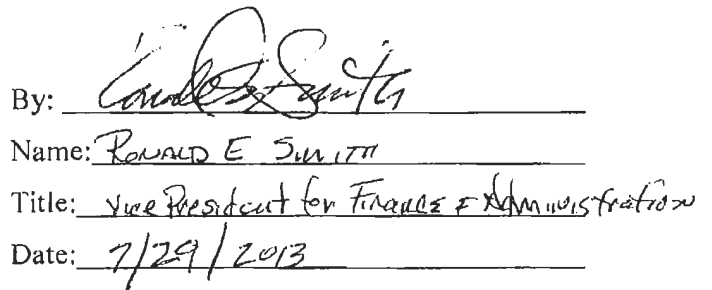 By: Ronald E Smith
Name: RONALD E SMITH
Title: Vice President for Finance & Administration
Date: 7/29/2013